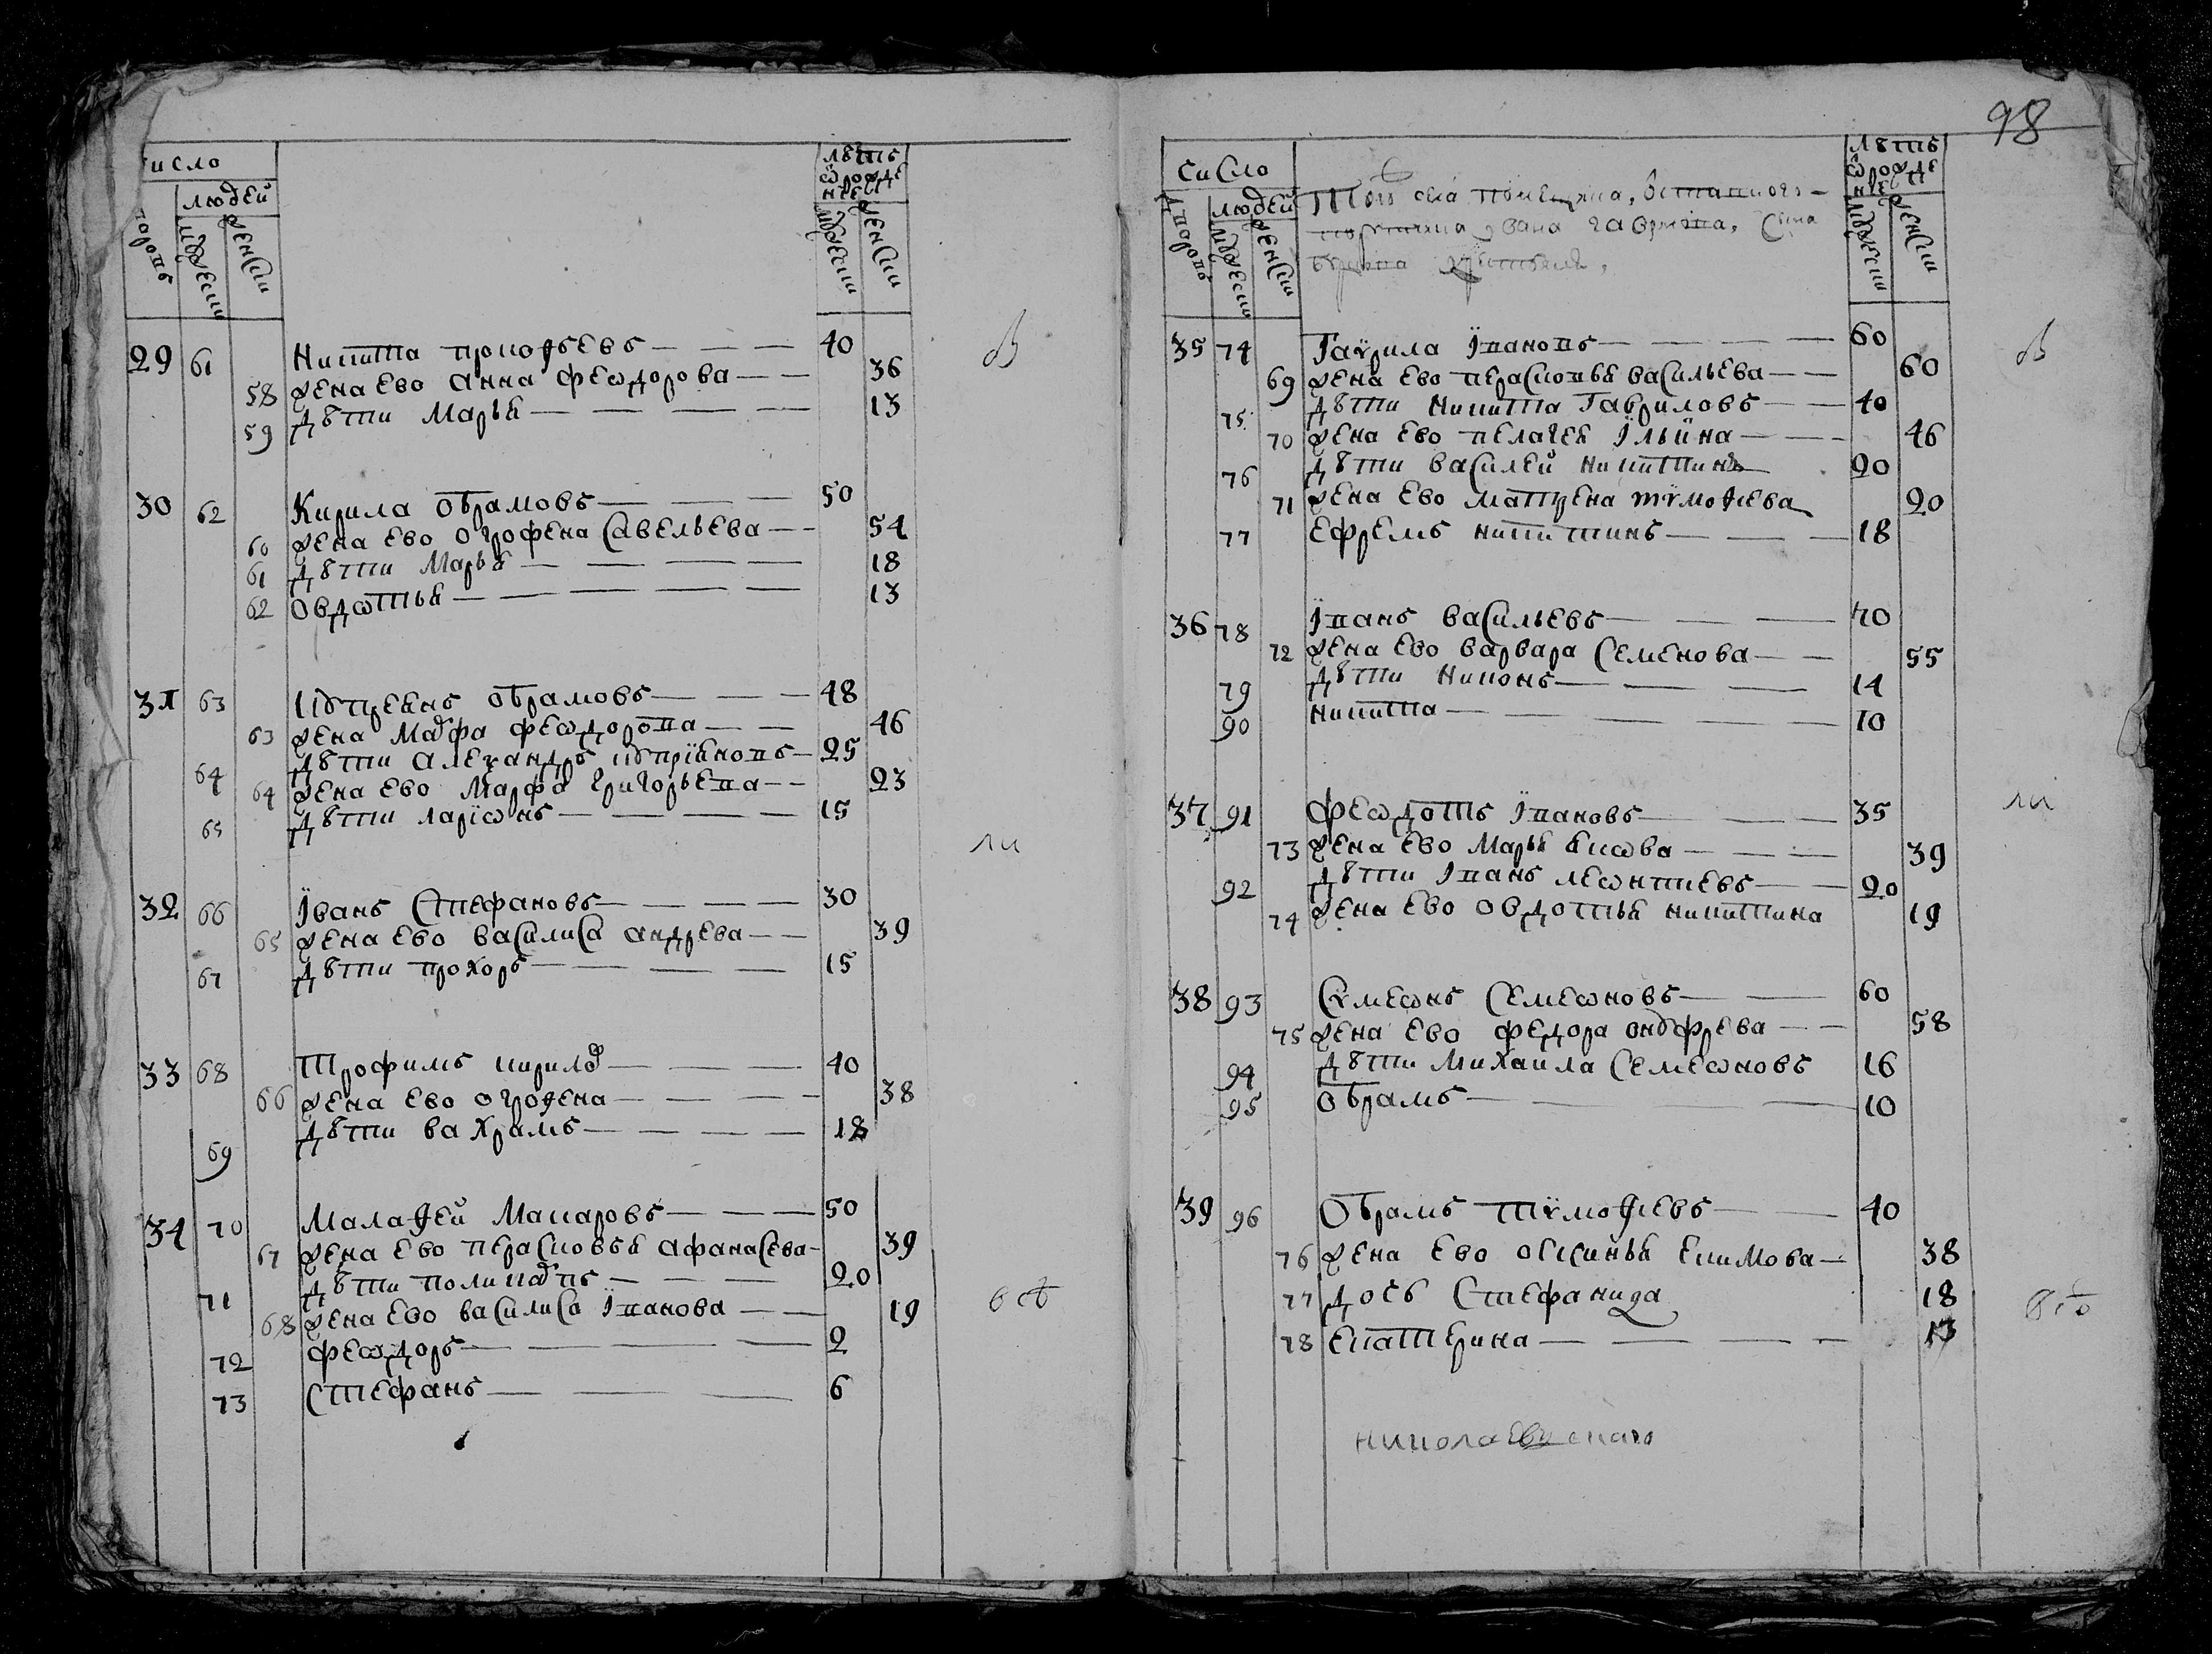 число
людей
дворовъ
мужеска
женска
лѣтъ
ѿрожде
нїе
мужеска
женска
29 61 Никита прокофьевъ 40
58 жена ево анна феѡдорова 36
59 дѣти Марья 13
30 62 Кирила Обрамовъ 50
60 жена ево огрофена савельева 54
61 дѣти Марья 18
62 Овдѡтья 13
31 63 Куприянъ обрамовъ 48
63 жена Марфа феѡдорова 46
64 дѣти алеѯандръ куприяновъ 25
64 жена ево Марфа григорьева 23
65 дѣти ларїѡнъ 15
ли
32 66 Їванъ Стефановъ 30
65 жена ево василиса андрева 39
67 дѣти прохоръ 15
33 68 Трофимъ кирило 40
66 жена ево огрофена 38
69 дѣти вахрамъ 18
34 70 Малафей Макаровъ 50
67 жена ево перасковья афанасева 39
71 дѣти поликарпъ 20
68 жена ево василиса їванова 19
72 феѡдоръ 2
73 Стефанъ 6
98
число
людей
дворовъ
мужеска
женска
Того села помещика
лѣтъ
ѿрожде
нїе
мужеска
женска
35 74 Гаѵрила ївановъ 60
69 жена ево перасковья васильева 60
75 дѣти никита Гавриловъ 40
70 жена ево пелагея їльина 46
76 дѣти василей никитинъ 20
71 жена ево матрена тѵмофиева 20
77 ефремъ никитинъ 18
36 78 Їванъ васильевъ 70
72 жена ево варвара семенова 55
79 дѣти Никонъ 14
90 никита 10
37 91 феѡдотъ ївановъ 35
73 жена ево Марья якѡва 39
92 дѣти їванъ леѡнтиевъ 20
74 жена ево овдотья никитина 19
ли
38 93 Сѵмеѡнъ семеѡновъ 60
75 жена ево федора ондрева 58
94 дѣти михаила семеѡновъ 16
95 обрамъ 10
39 96 Обрамъ тѵмофиевъ 40
76 жена ево оксинья екимова 38
77 дочь Стефанида 18
78 екатерина 13
николаевскаго